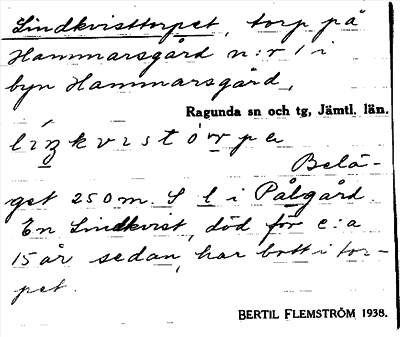 Lindkvisttorpet, torp på
Hammarsgård n:r 1 i
byn Hammarsgård,
Ragunda sn och tg, Jämtl. län.
Belä-
get 250 m. S l i Pålgård.
En Lindkvist, död för c:a
15 år sedan, har bott i tor-
pet.
BERTIL FLEMSTRÖM 1938.